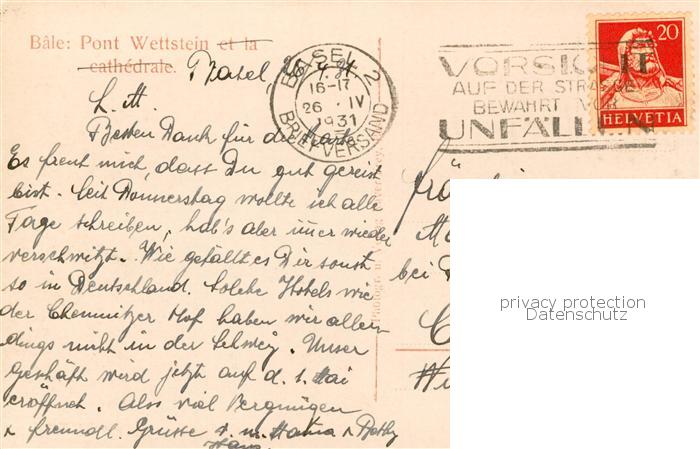 Bâle: Pont Wettstein et la
cathédrale.
Basel
BASEL 2
16-17
26. IV
1931
BRIEFVERSAND
VORSICHT
AUF DER STRASSE
BEWAHRT VOR
UNFÄLLEN
20
HELVETIA
L. M.
Besten Dank für die Karte.
Es freut mich, dass Du gut gereist
bist. Seit Donnerstag wollte ich alle
Tage schreiben, hab's aber immer wieder
verschwitzt. Wie gefällt es Dir sonst
so in Deutschland. Solche Hotels wie
der Chemnitzer Hof haben wir aller-
dings nicht in der Schweiz. Unser
Geschäft wird jetzt auf d. 1. Mai
eröffnet. Also viel Vergnügen
& freundl. Grüsse
Hans
bei
privacy protection
Datenschutz